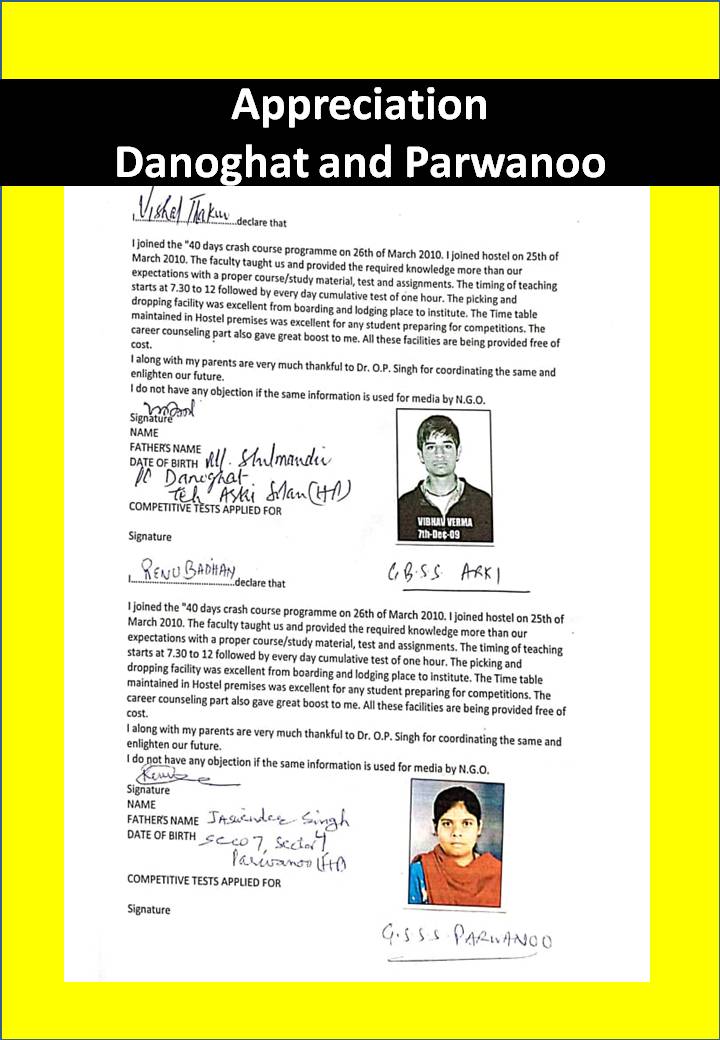 Appreciation
Danoghat and Parwanoo
I, Vishal Thakur declare that
I joined the "40 days crash course programme on 26th of March 2010. I joined hostel on 25th of
March 2010. The faculty taught us and provided the required knowledge more than our
expectations with a proper course/study material, test and assignments. The timing of teaching
starts at 7.30 to 12 followed by every day cumulative test of one hour. The picking and
dropping facility was excellent from boarding and lodging place to institute. The Time table
maintained in Hostel premises was excellent for any student preparing for competitions. The
career counseling part also gave great boost to me. All these facilities are being provided free of
cost.
I along with my parents are very much thankful to Dr. O.P. Singh for coordinating the same and
enlighten our future.
I do not have any objection if the same information is used for media by N.G.O.
Signature
NAME
FATHER'S NAME
DATE OF BIRTH
Danoghat
Teh Arki Solan (HP)
COMPETITIVE TESTS APPLIED FOR
VIBHAV VERMA
7th-Dec-09
Signature
G.B.S.S ARKI
I, RENU BADHAN declare that
I joined the "40 days crash course programme on 26th of March 2010. I joined hostel on 25th of
March 2010. The faculty taught us and provided the required knowledge more than our
expectations with a proper course/study material, test and assignments. The timing of teaching
starts at 7.30 to 12 followed by every day cumulative test of one hour. The picking and
dropping facility was excellent from boarding and lodging place to institute. The Time table
maintained in Hostel premises was excellent for any student preparing for competitions. The
career counseling part also gave great boost to me. All these facilities are being provided free of
cost.
I along with my parents are very much thankful to Dr. O.P. Singh for coordinating the same and
enlighten our future.
I do not have any objection if the same information is used for media by N.G.O.
Renu
Signature
NAME
FATHER'S NAME Jaswinder Singh
DATE OF BIRTH 7, Sector 4
Parwanoo (HP)
COMPETITIVE TESTS APPLIED FOR
Signature
G.S.S.S PARWANOO